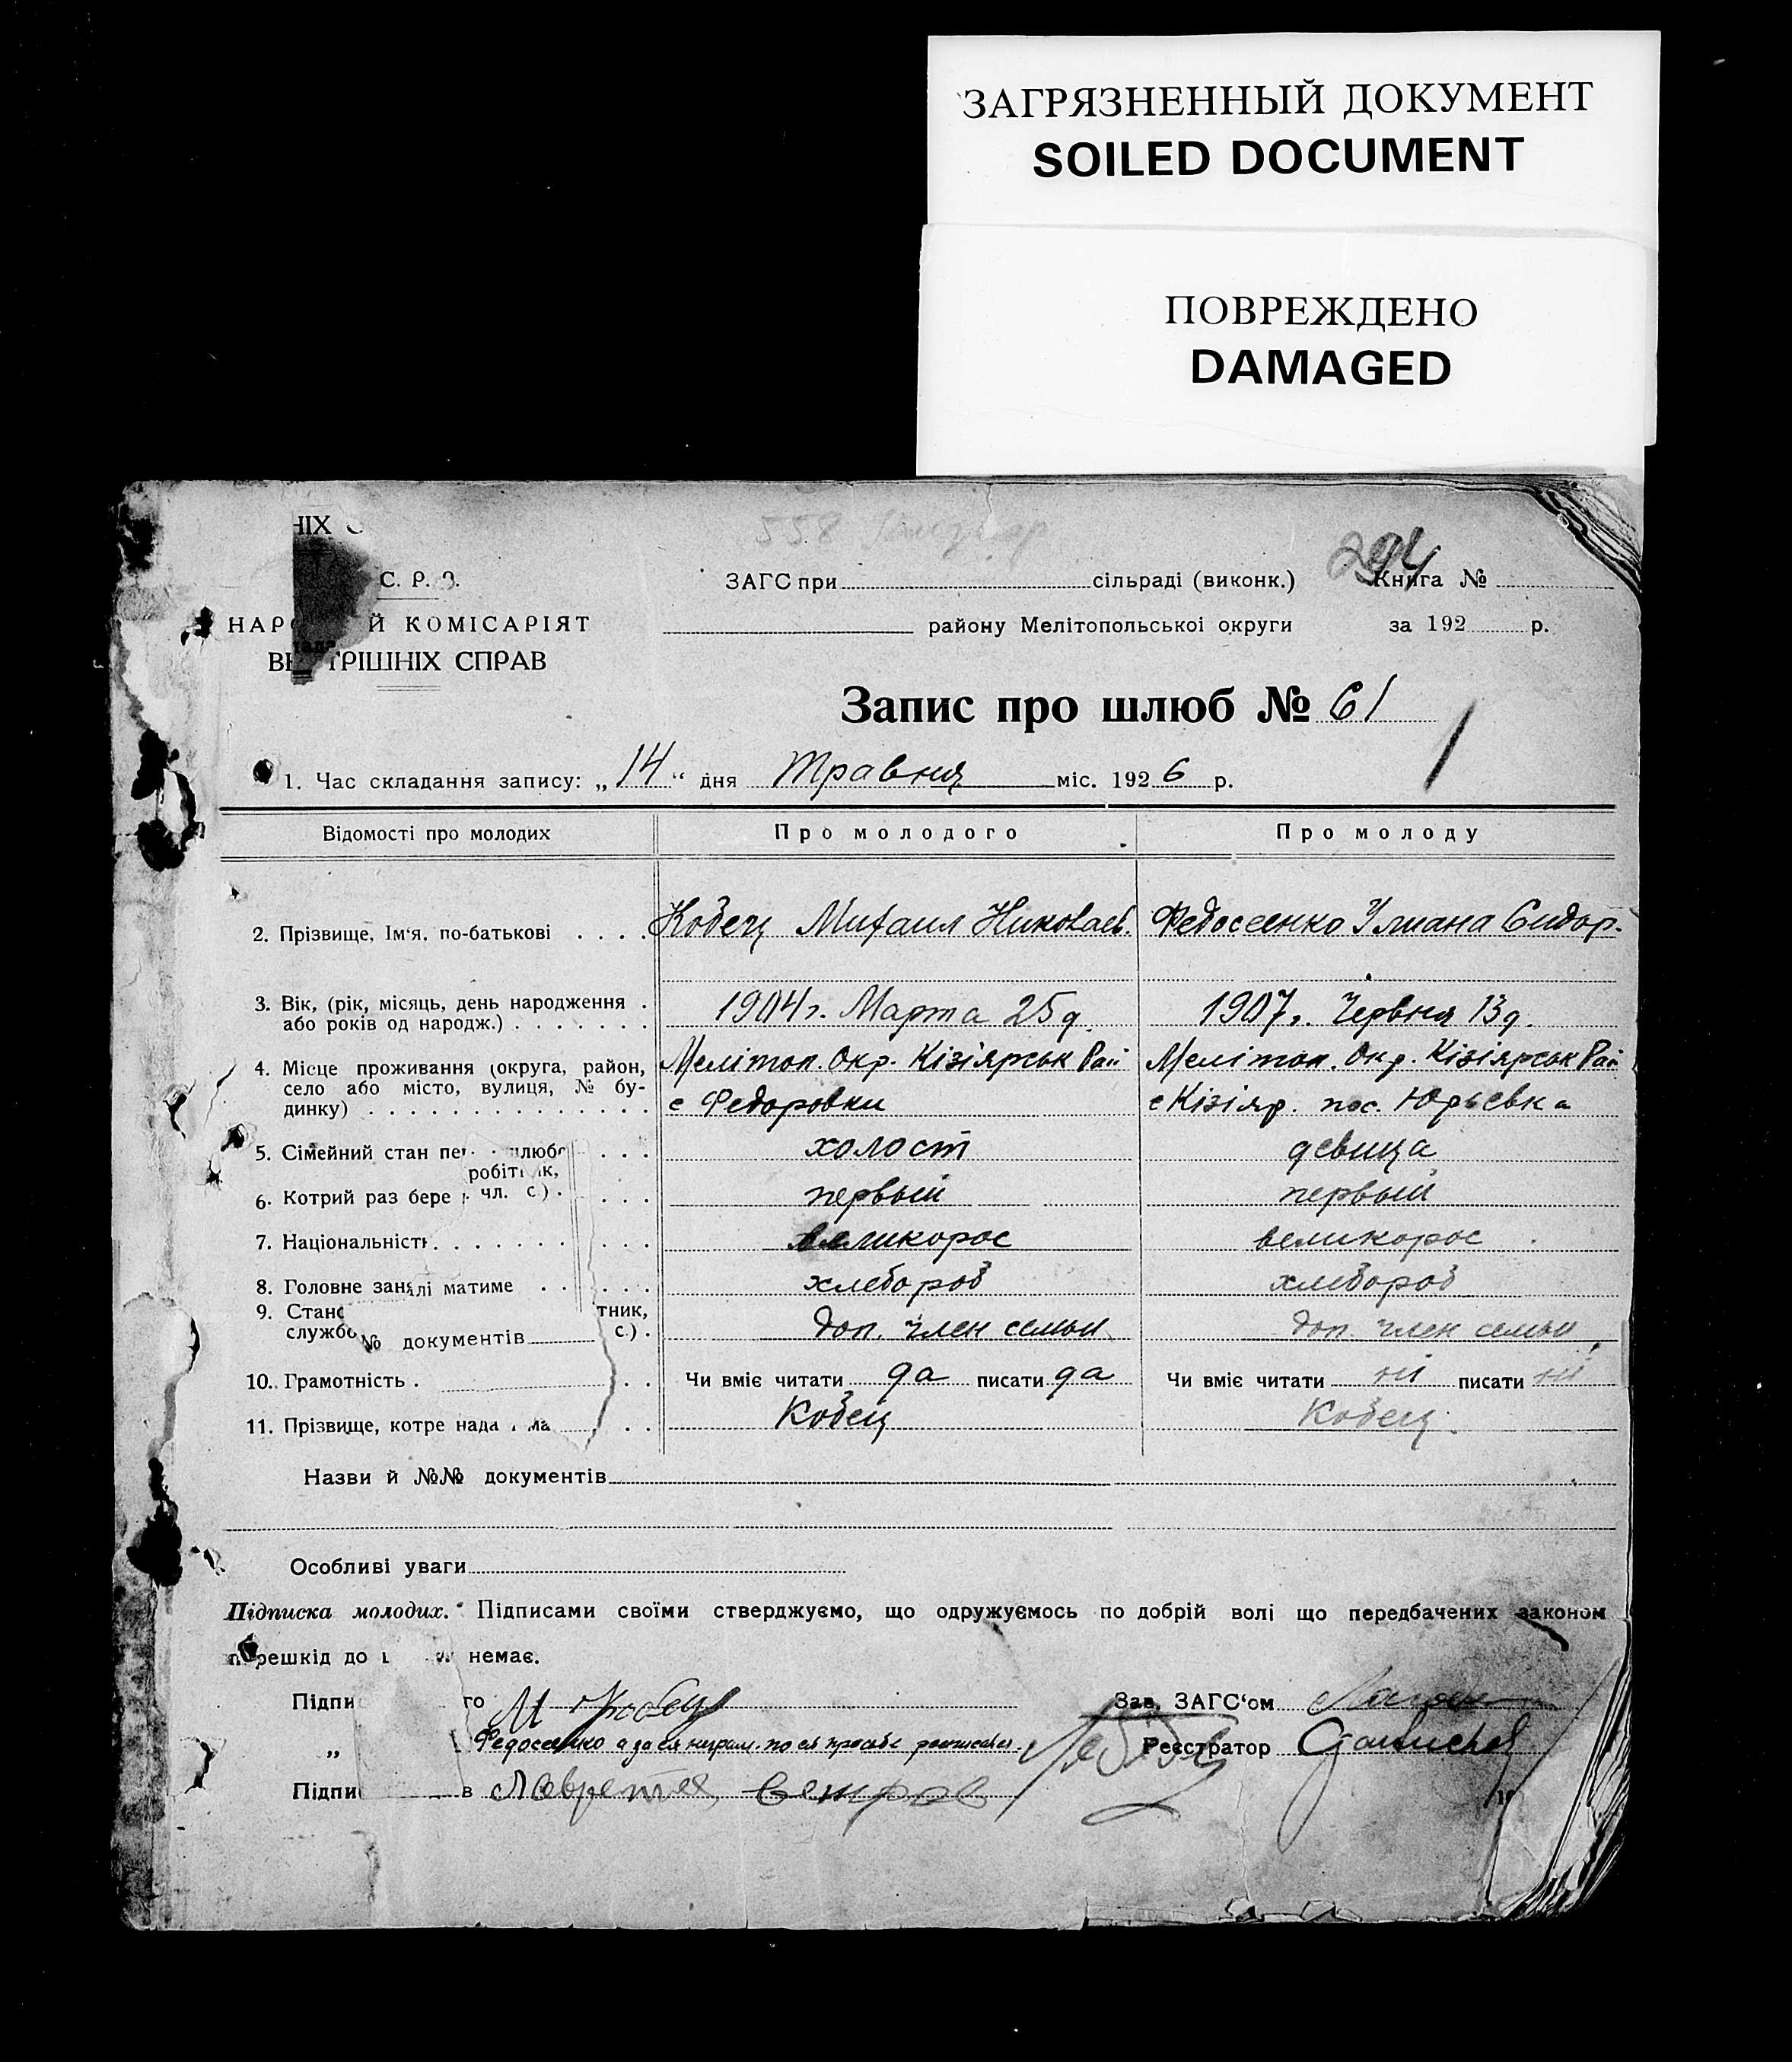 ЗАГРЯЗНЕННЫЙ ДОКУМЕНТ
SOILED DOCUMENT
ПОВРЕЖДЕНО
DAMAGED
НІХ
558
294
С. Р. Р.
ЗАГС при сільраді (виконк.) Книга №
НАР Й КОМІСАРІЯТ
району Мелітопольської округи за 192 р.
ВН ТРІШНІХ СПРАВ
Запис про шлюб № 61
1. Час складання запису: „14“ дня Травня міс. 1926 р.
Відомості про молодих Про молодого Про молоду
2. Прізвище, Ім‘я, по-батькові . . . . Кобец Михаил Николаев. Федосеенко Улиана Сидор.
3. Вік, (рік, місяць, день народження . 1904 г. Марта 25 д. 1907 г. Червня 13 д.
або років од народж.) . . . . . . .
4. Місце проживання (округа, район, Мелітоп. Окр. Кізіярськ Рай Мелітоп. Окр. Кізіярськ Рай
село або місто, вулиця, № бу-
динку) . . . . . . . . . . . . . . с Федоровки с Кізіяр. пос. Юрьевка
5. Сімейний стан пе шлюбо . . . холост девица
робітн ик,
6. Котрий раз бере чл. с.) . . . . первый первый
7. Національність . . . . . . . . . . великорос великорос
8. Головне заня лі матиме . . . . . хлебороб хлебороб
9. Стано тник,
службо № документів с.) . доп. член семьи доп. член семьи
10. Грамотність . . . Чи вміє читати да писати да Чи вміє читати ні писати ні
11. Прізвище, котре нада ма . . Кобец Кобец.
Назви й №№ документів
Особливі уваги
Підписка молодих. Підписами своїми стверджуємо, що одружуємось по добрій волі що передбачених законом
перешкід до немає.
Підпи го М Кобец Зав. ЗАГС‘ом
„ Федосеенко а за ея неграм. по ея просьбе Реєстратор
Підпи в